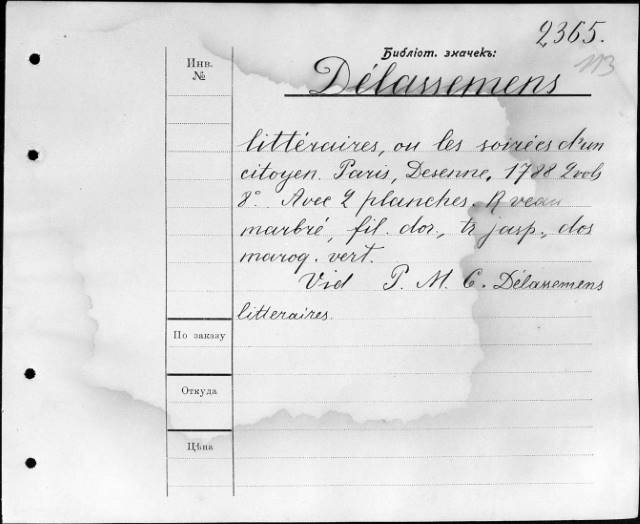 2365.
113
Библіот. значекъ:
Инв.
№
Délassemens
littéraires, ou les soirées d'un
citoyen. Paris, Desenne, 1788 2 vols
8°. Avec 2 planches. R veau
marbré, fil. dor., tr jasp., dos
maroq. vert.
Vid P. M. C. Délassemens
litteraires.
По заказу
Откуда
Цѣна